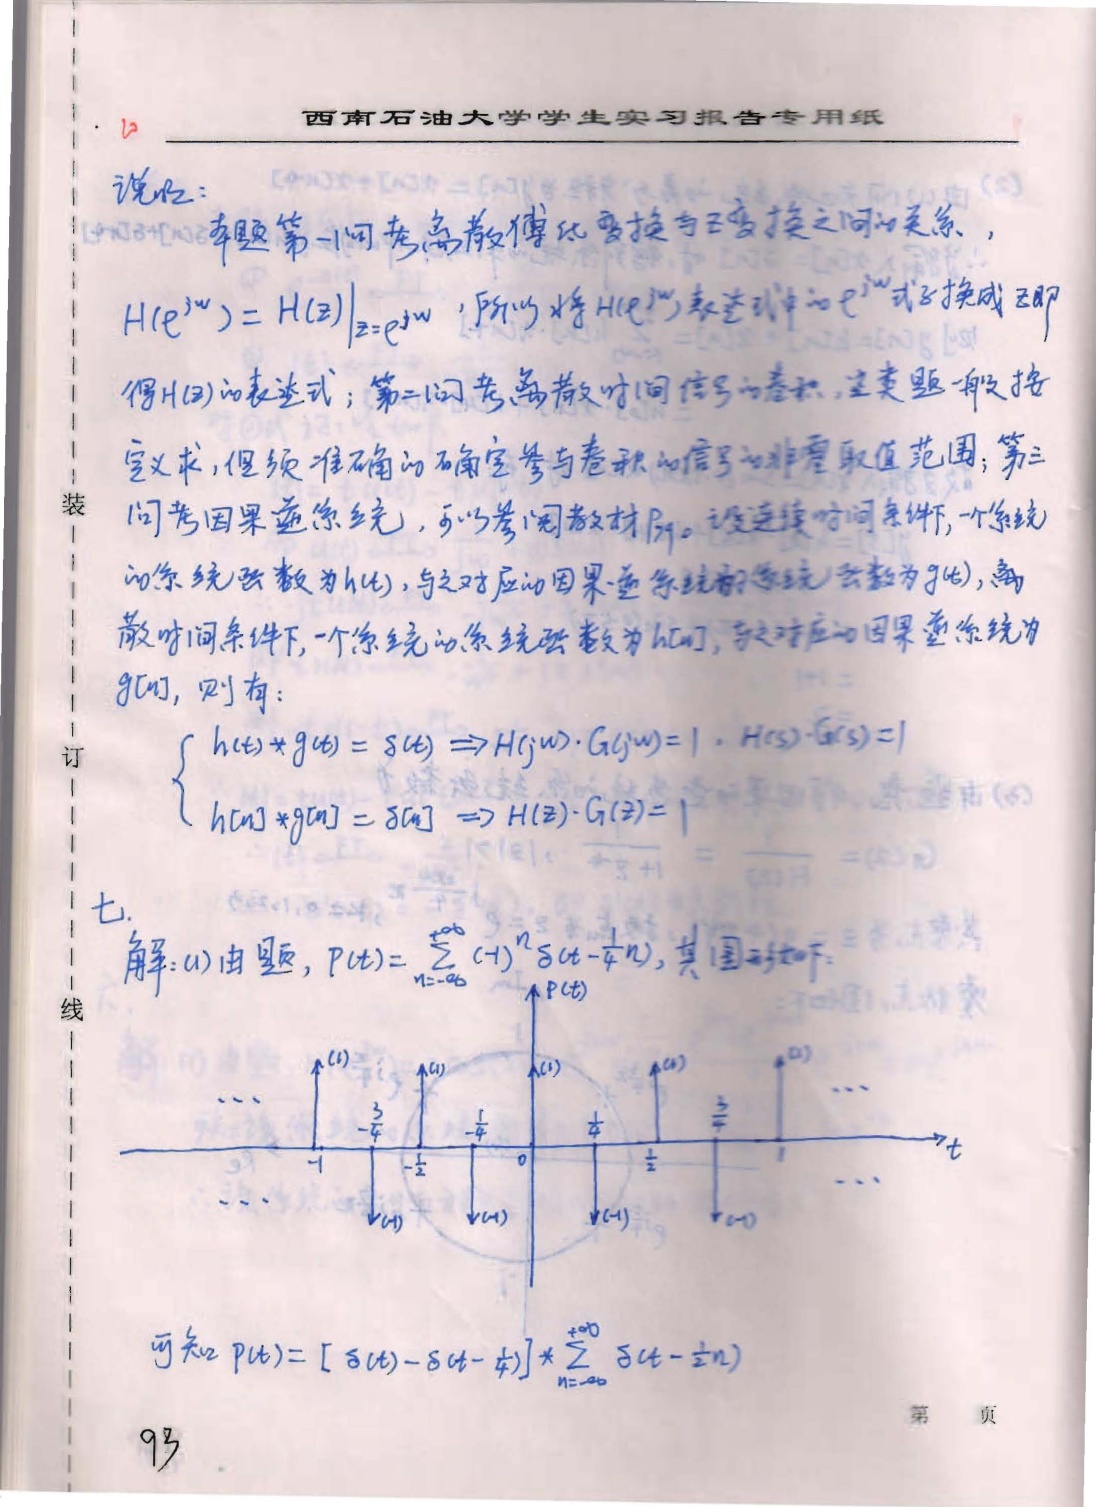 西南石油大学学生实习报告专用纸
说明:
本题第一问考离散傅氏变换与Z变换之间的关系,
H(e^{jw}) = H(z)|_{z=e^{jw}}, 所以将H(e^{jw})表达式中的e^{jw}式子换成Z即
得H(z)的表达式; 第二问考离散时间信号的卷积, 这类题一般按
定义求, 但须准确的确定参与卷积的信号的非零取值范围; 第三
问考因果逆系统, 可以参阅教材P79。设连续时间条件下, 一个系统
的系统函数为h(t), 与之对应的因果逆系统的系统函数为g(t), 离
散时间条件下, 一个系统的系统函数为h[n], 与之对应的因果逆系统为
g[n], 则有:
h(t)*g(t) = δ(t) ⇒ H(jw)·G(jw)=1, H(s)·G(s)=1
h[n]*g[n] = δ[n] ⇒ H(z)·G(z)=1
七.
解:(1)由题, P(t)= Σ_{n=-∞}^{+∞} (-1)^n δ(t-¼n), 其图形如下:
P(t)
(1) (1) (1) (1) (1)
... -3/4 -1/4 1/4 3/4 ...
-1 -1/2 0 1/2 1 t
... (-1) (-1) (-1) (-1) ...
可知 P(t)= [δ(t)-δ(t-¼)] * Σ_{n=-∞}^{+∞} δ(t-½n)
第 页
93
装
订
线